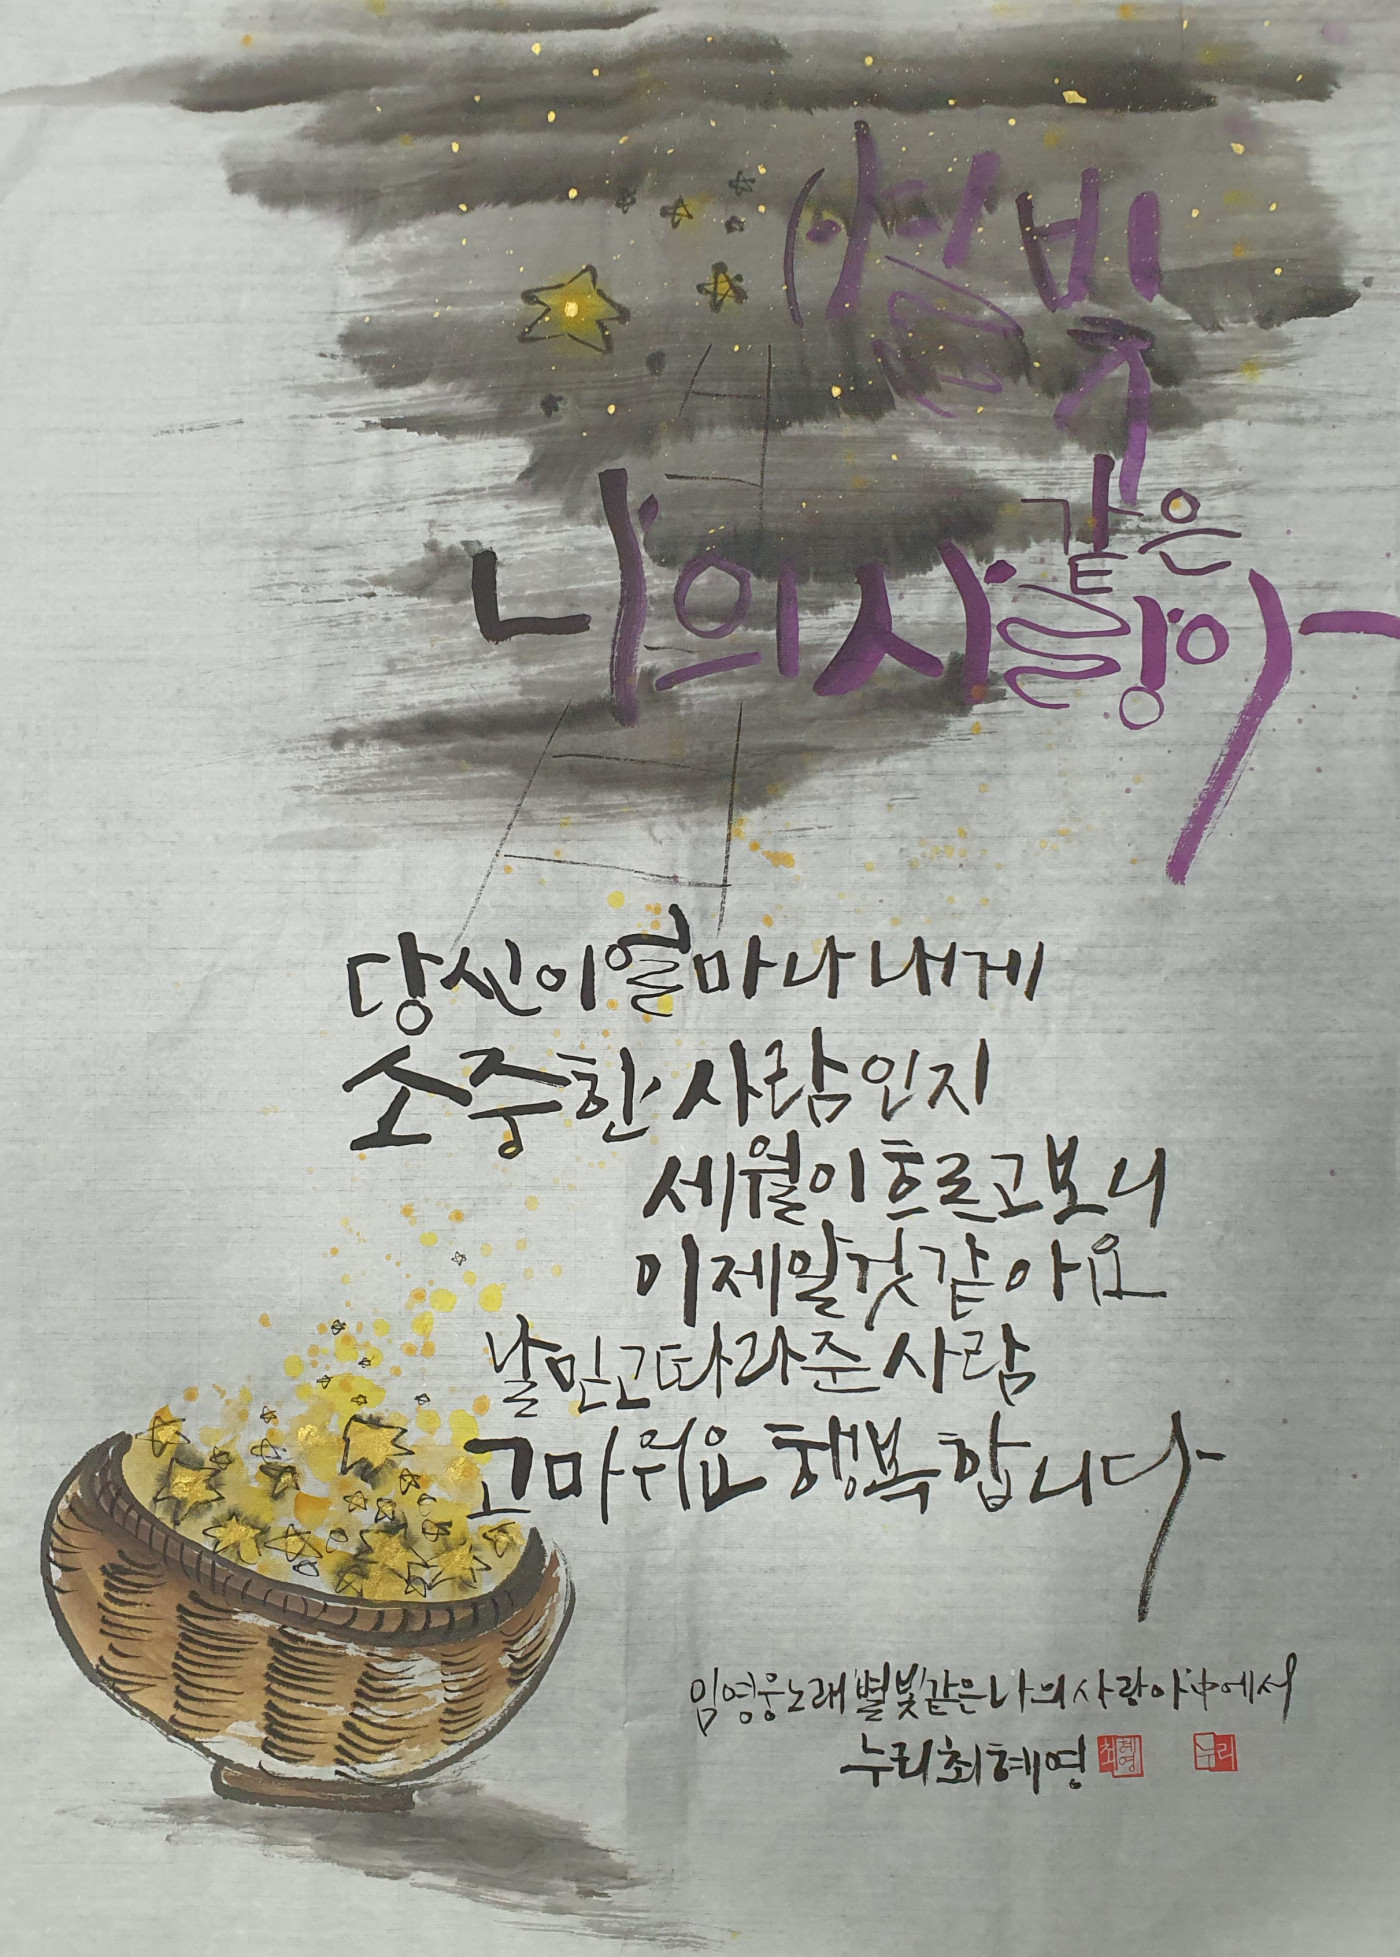 별빛
같은
나의 사랑아
당신이 얼마나 내게
소중한 사람인지
세월이 흐르고 보니
이제 알 것 같아요
날 믿고 따라준 사람
고마워요 행복합니다
임영웅 노래 '별빛같은 나의 사랑아' 中에서
누리 최혜영
최혜영
누리